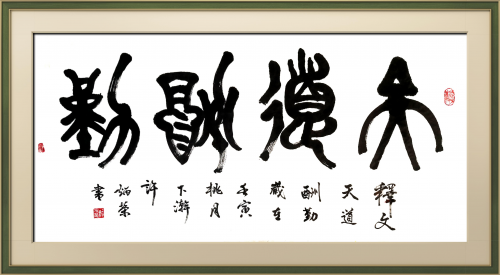 天道酬勤
釋文
天道
酬勤
歲在
壬寅
桃月
下澣
許
炳榮
書